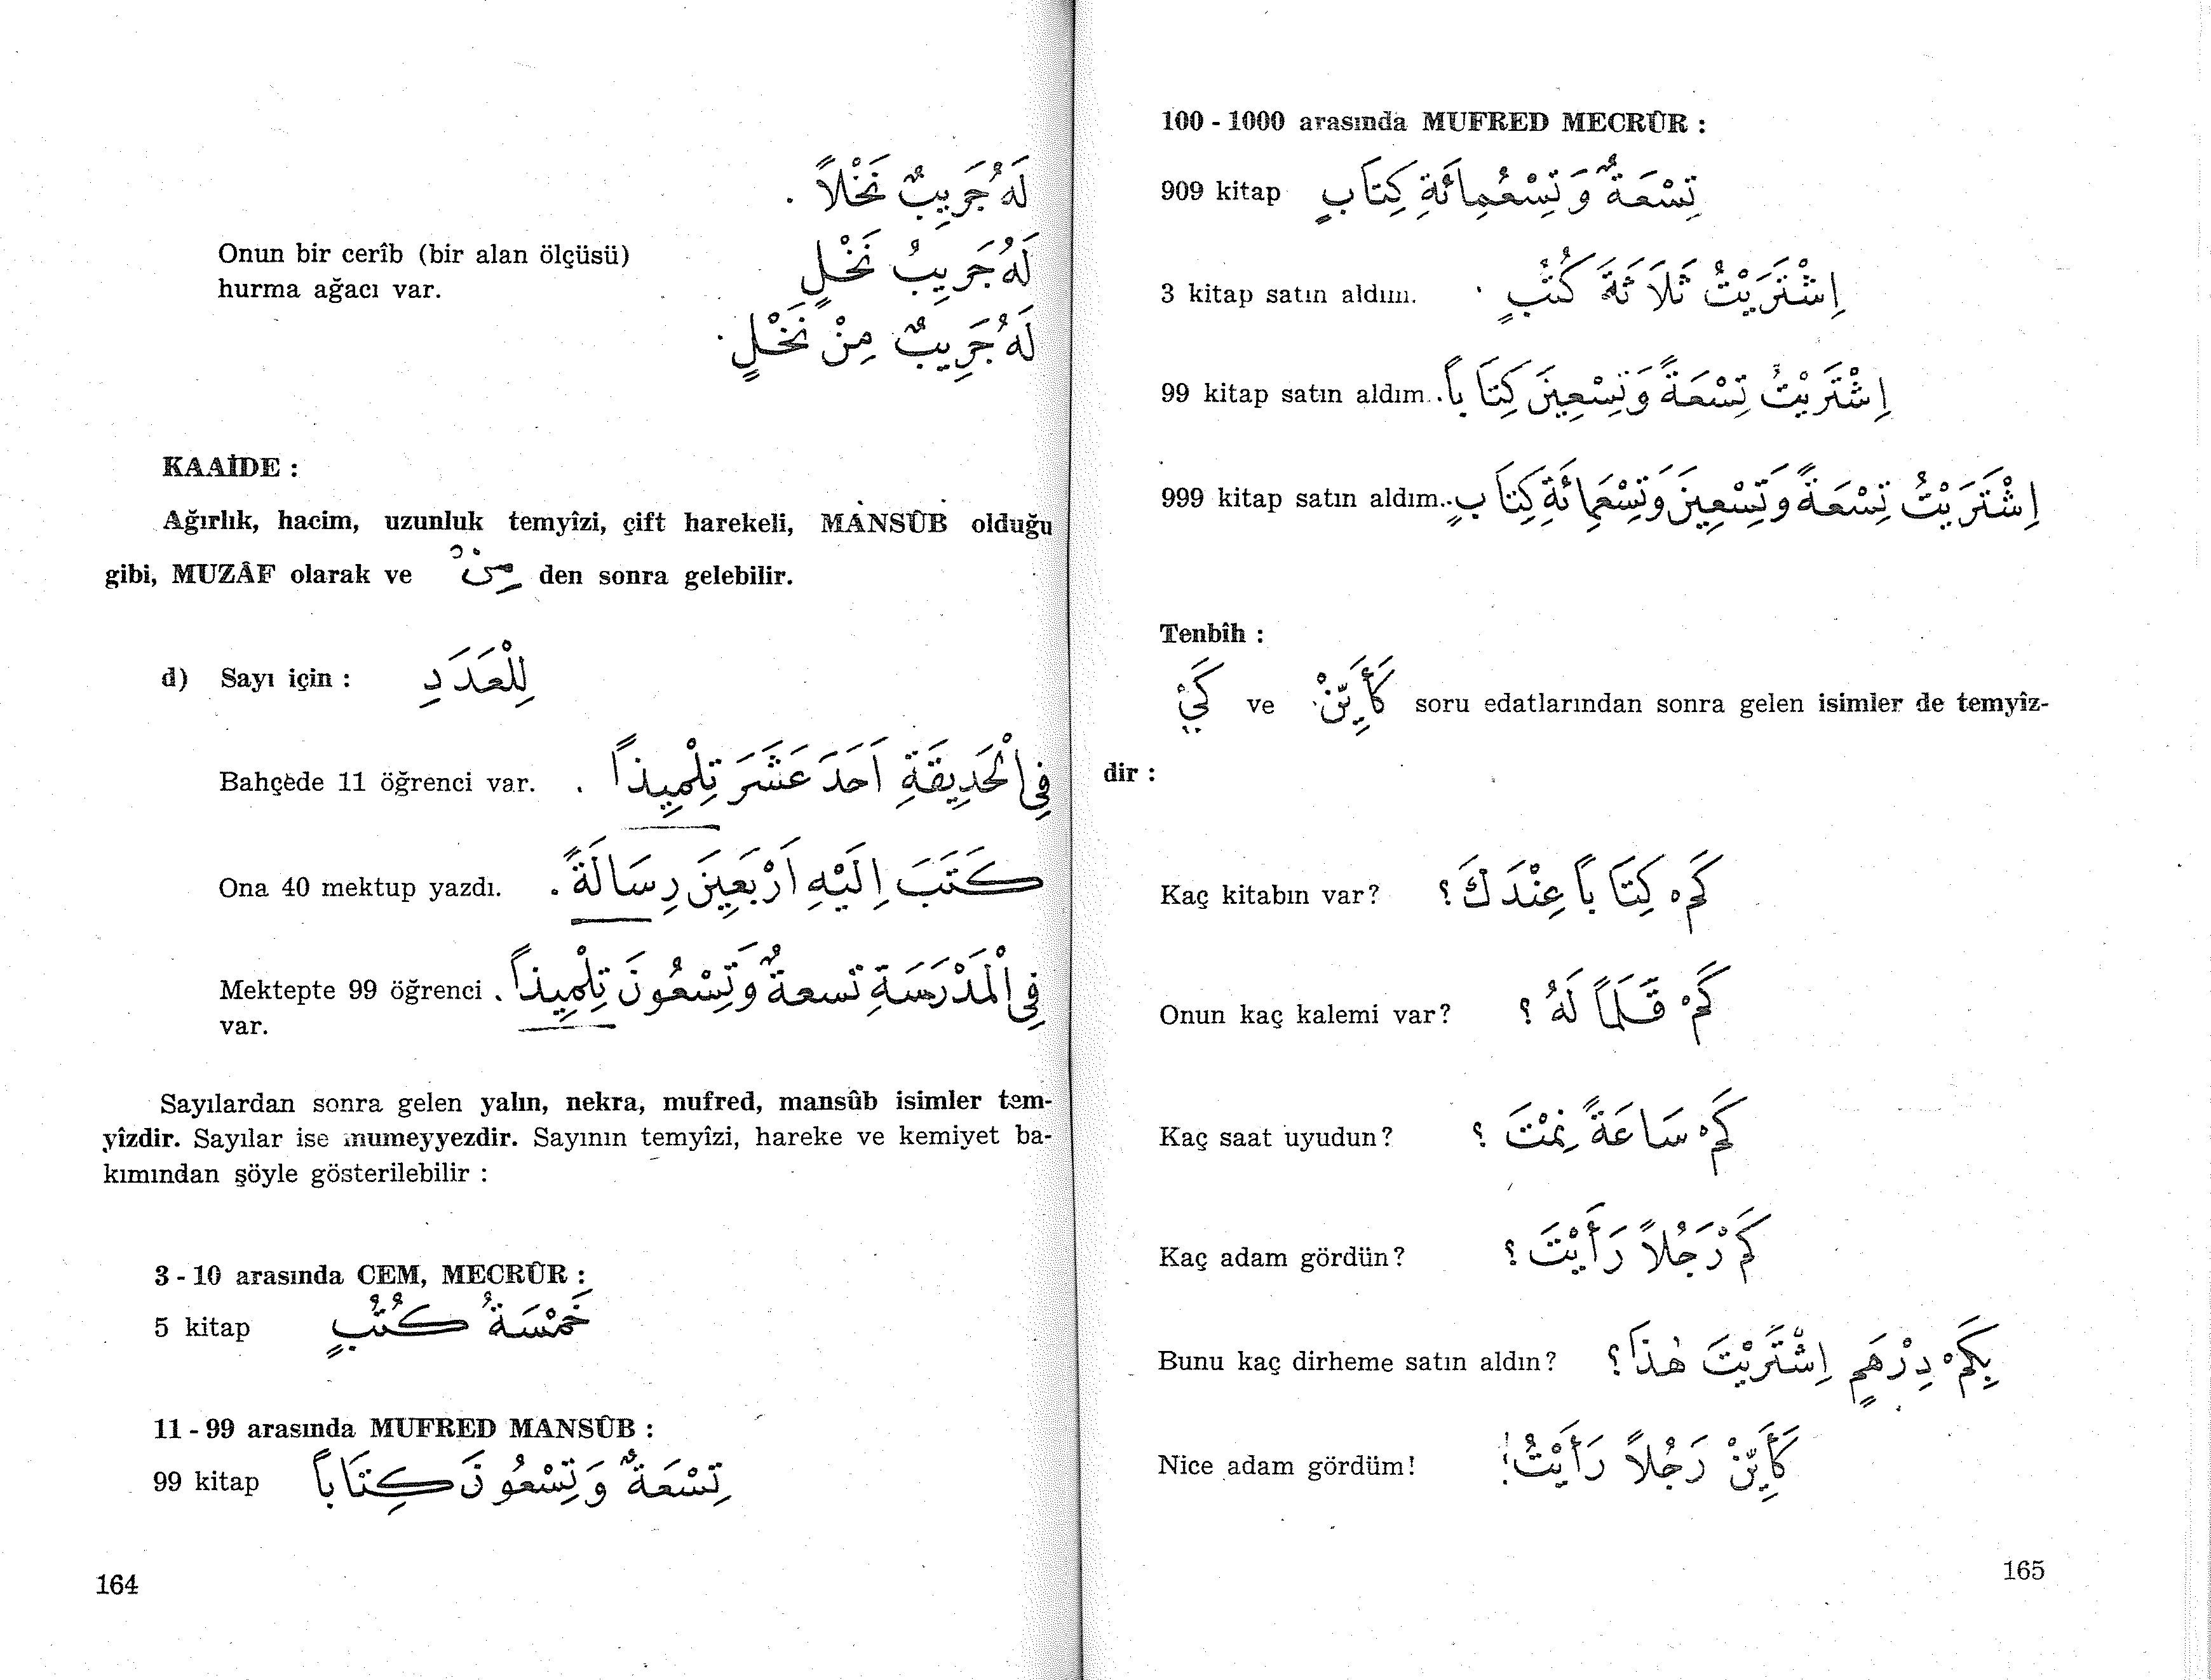 لَهُ جَرِيبٌ نَخْلاً .
Onun bir cerîb (bir alan ölçüsü) لَهُ جَرِيبُ نَخْلٍ
hurma ağacı var.
لَهُ جَرِيبٌ مِنْ نَخْلٍ .
KAAİDE :
Ağırlık, hacim, uzunluk temyîzi, çift harekeli, MANSÛB olduğu
gibi, MUZÂF olarak ve مِنْ den sonra gelebilir.
d) Sayı için : لِلْعَدَدِ
Bahçede 11 öğrenci var. فِي الْحَدِيقَةِ اَحَدَ عَشَرَ تِلْمِيذاً .
Ona 40 mektup yazdı. كَتَبَ اِلَيْهِ اَرْبَعِينَ رِسَالَةً .
Mektepte 99 öğrenci فِي الْمَدْرَسَةِ تسعةٌ وَتِسْعُونَ تِلْمِيذاً .
var.
Sayılardan sonra gelen yalın, nekra, mufred, mansûb isimler tem-
yîzdir. Sayılar ise mumeyyezdir. Sayının temyîzi, hareke ve kemiyet ba-
kımından şöyle gösterilebilir :
3 - 10 arasında CEM, MECRÛR :
5 kitap خَمْسَةُ كُتُبٍ
11 - 99 arasında MUFRED MANSÛB :
99 kitap تِسْعَةٌ وَتِسْعُونَ كِتَاباً
164
100 - 1000 arasında MUFRED MECRÛR :
909 kitap تِسْعَةٌ وَتِسْعُمِائَةِ كِتَابٍ
3 kitap satın aldım. اِشْتَرَيْتُ ثَلَاثَةَ كُتُبٍ .
99 kitap satın aldım. اِشْتَرَيْتُ تِسْعَةً وَتِسْعِينَ كِتَاباً.
999 kitap satın aldım. اِشْتَرَيْتُ تِسْعَةً وَتِسْعِينَ وَتِسْعَمِائَةِ كِتَابٍ.
Tenbîh :
كَمْ ve كَأَيِّنْ soru edatlarından sonra gelen isimler de temyîz-
dir :
Kaç kitabın var? كَمْ كِتَاباً عِنْدَكَ؟
Onun kaç kalemi var? كَمْ قَلَماً لَهُ؟
Kaç saat uyudun? كَمْ سَاعَةً نِمْتَ؟
Kaç adam gördün? كَمْ رَجُلاً رَأَيْتَ؟
Bunu kaç dirheme satın aldın? بِكَمْ دِرْهَمٍ اِشْتَرَيْتَ هٰذَا؟
Nice adam gördüm! كَأَيِّنْ رَجُلاً رَأَيْتُ!
165